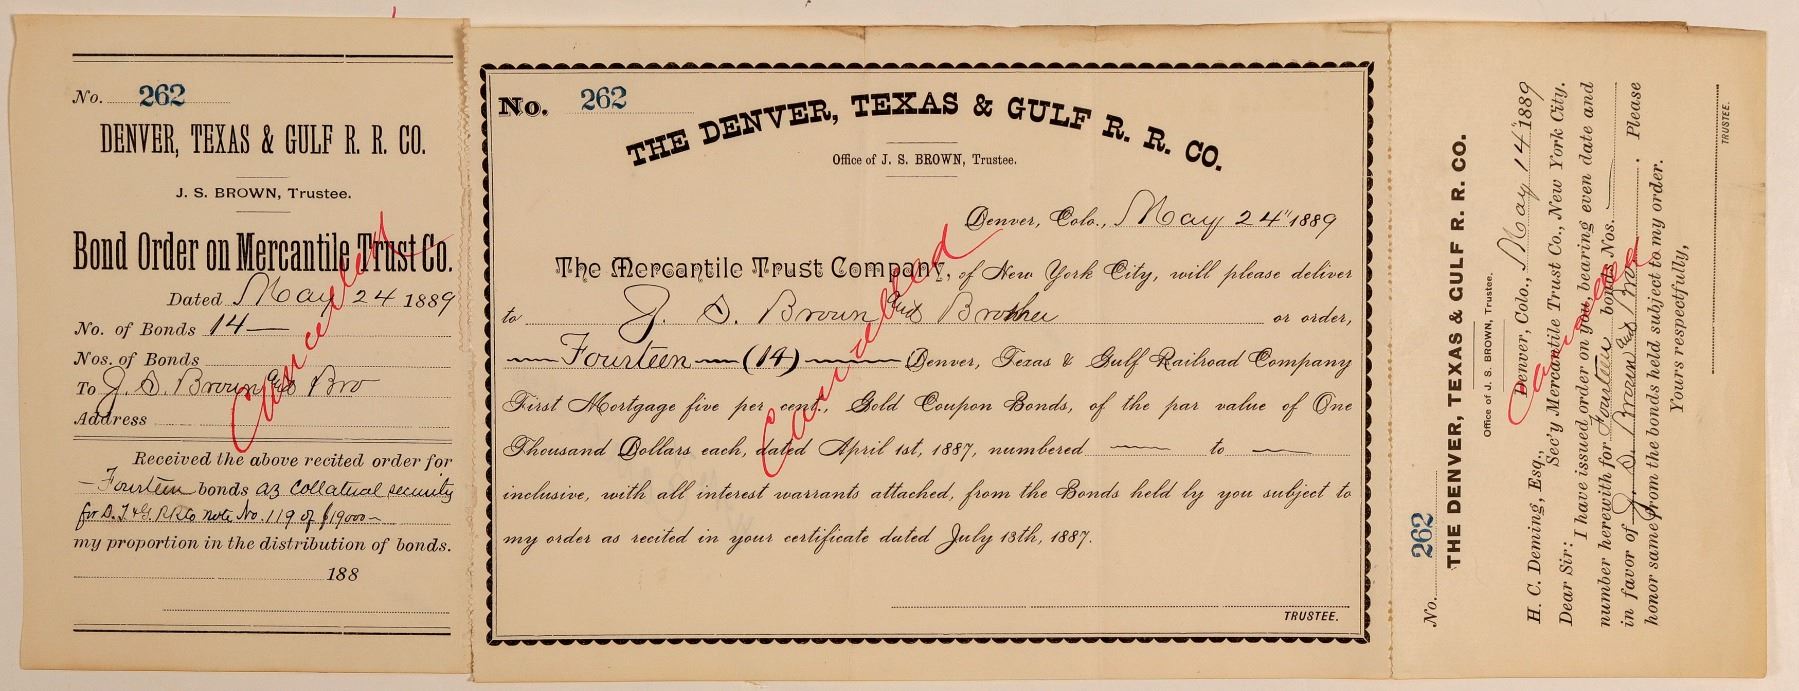 No. 262
DENVER, TEXAS & GULF R. R. CO.
J. S. BROWN, Trustee.
Bond Order on Mercantile Trust Co.
Dated May 24 1889
No. of Bonds 14—
Nos. of Bonds
To J. S. Brown and Bro
Address
Received the above recited order for
— Fourteen bonds as collateral security
for D. T & G. RR Co note No. 119 of $19000—
my proportion in the distribution of bonds.
188
Cancelled
No. 262
THE DENVER, TEXAS & GULF R. R. CO.
Office of J. S. BROWN, Trustee.
Denver, Colo., May 24" 1889
The Mercantile Trust Company, of New York City, will please deliver
to J. S. Brown and Brother or order,
— Fourteen — (14) — Denver, Texas & Gulf Railroad Company
First Mortgage five per cent., Gold Coupon Bonds, of the par value of One
Thousand Dollars each, dated April 1st, 1887, numbered — to —
inclusive, with all interest warrants attached, from the Bonds held by you subject to
my order as recited in your certificate dated July 13th, 1887.
TRUSTEE.
Cancelled
No. 262
THE DENVER, TEXAS & GULF R. R. CO.
Office of J. S. BROWN, Trustee.
Denver, Colo., May 14" 1889
H. C. Deming, Esq.,
Sec'y Mercantile Trust Co., New York City.
Dear Sir:
I have issued order on you, bearing even date and
number herewith for Fourteen bonds Nos. —
in favor of J. S. Brown and Bro. Please
honor same from the bonds held subject to my order.
Yours respectfully,
TRUSTEE.
Cancelled